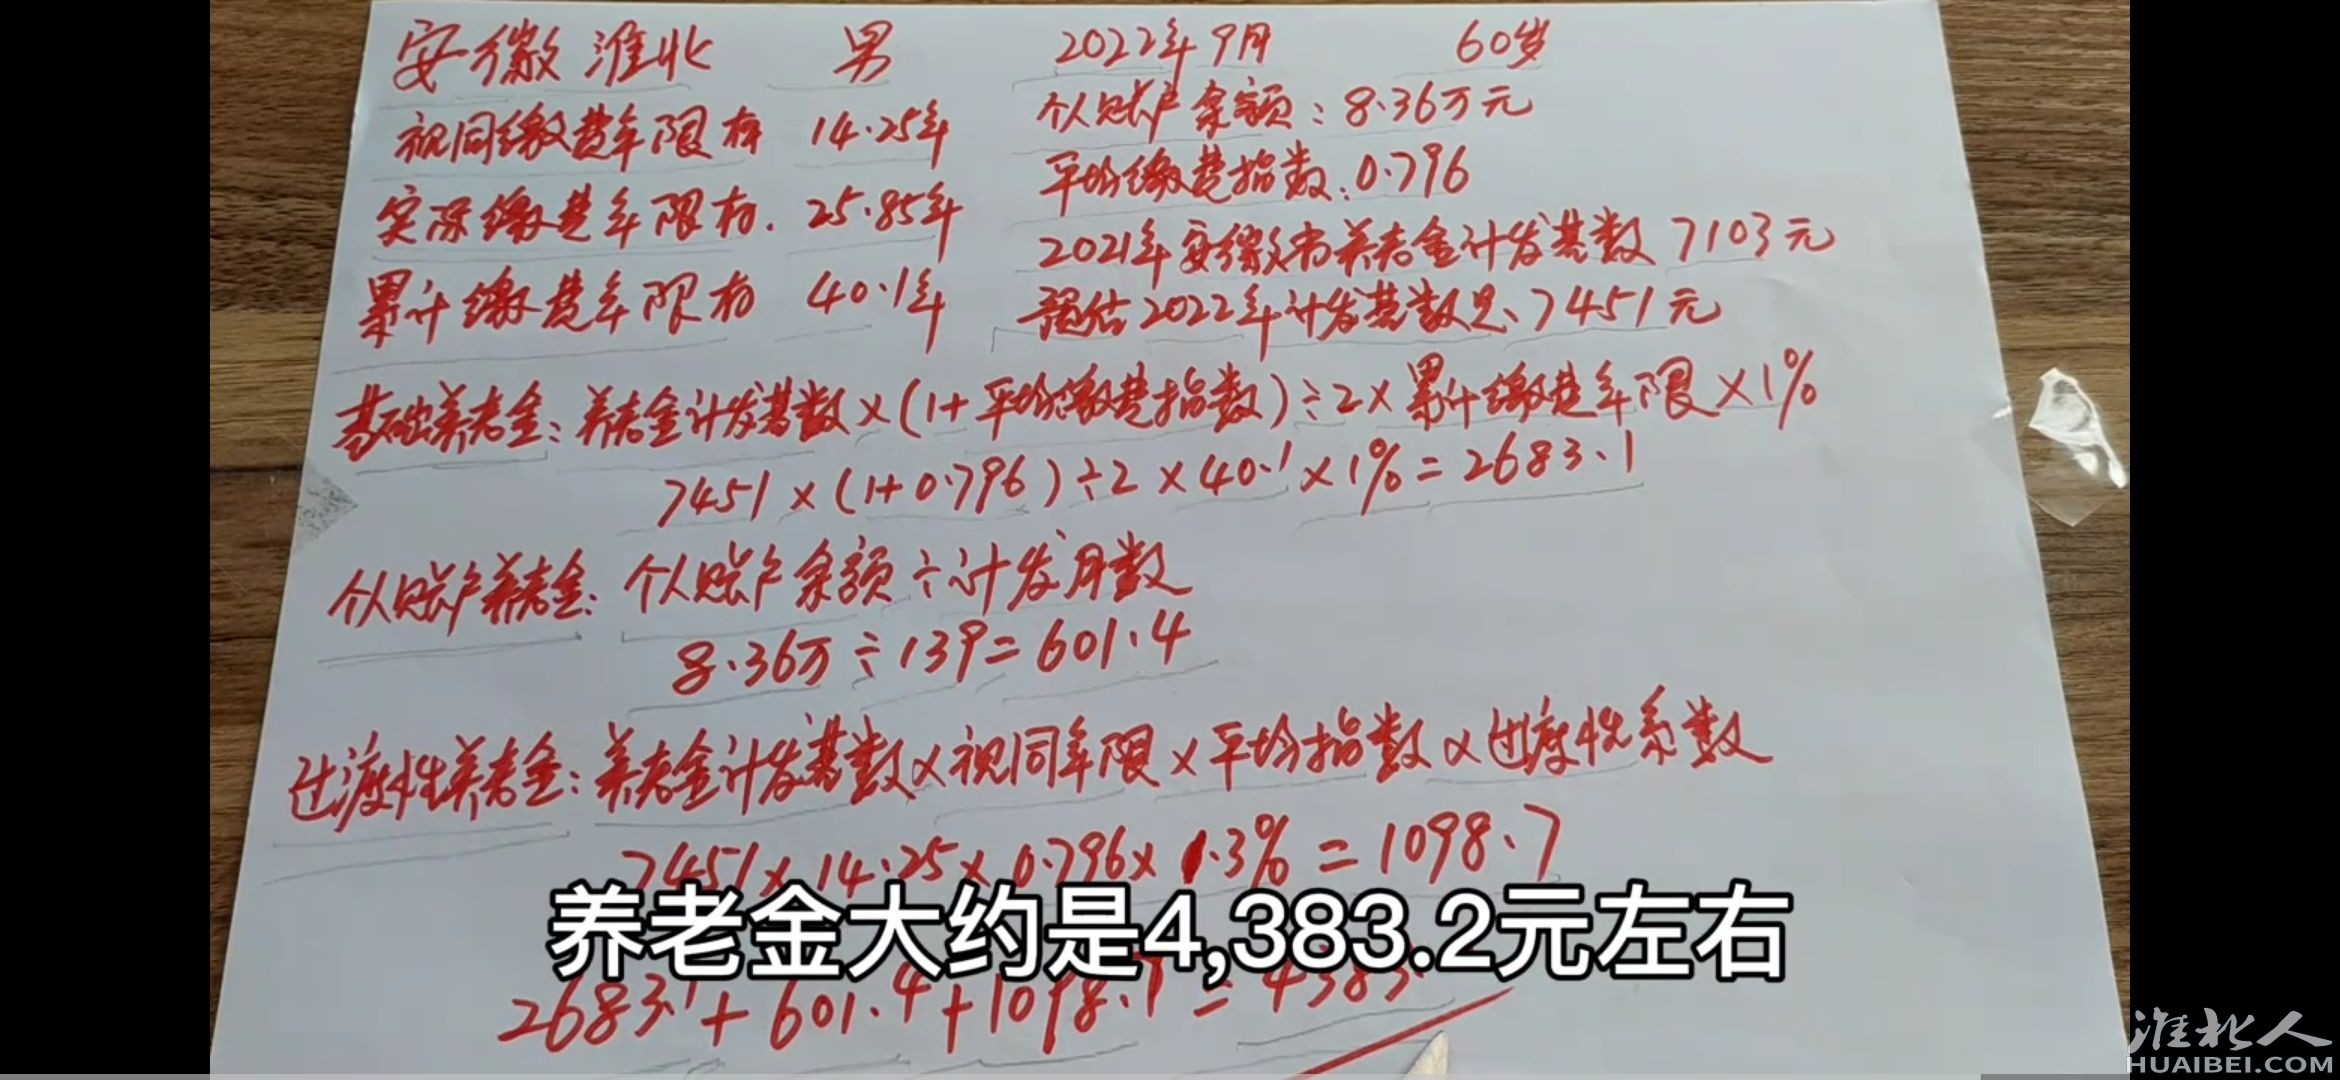 安徽 淮北 男 2022年9月 60岁
视同缴费年限有 14.25年
个人账户余额：8.36万元
实际缴费年限有. 25.85年
平均缴费指数：0.796
2021年安徽省养老金计发基数 7103元
累计缴费年限有 40.1年
预估2022年计发基数是、7451元
基础养老金：养老金计发基数×（1+平均缴费指数）÷2×累计缴费年限×1%
7451×（1+0.796）÷2×40.1×1%=2683.1
个人账户养老金：个人账户余额÷计发月数
8.36万÷139=601.4
过渡性养老金：养老金计发基数×视同年限×平均指数×过渡性系数
7451×14.25×0.796×1.3%=1098.7
养老金大约是4,383.2元左右
2683.1+601.4+1098.7=4383.
淮北人
HUAIBEI.COM